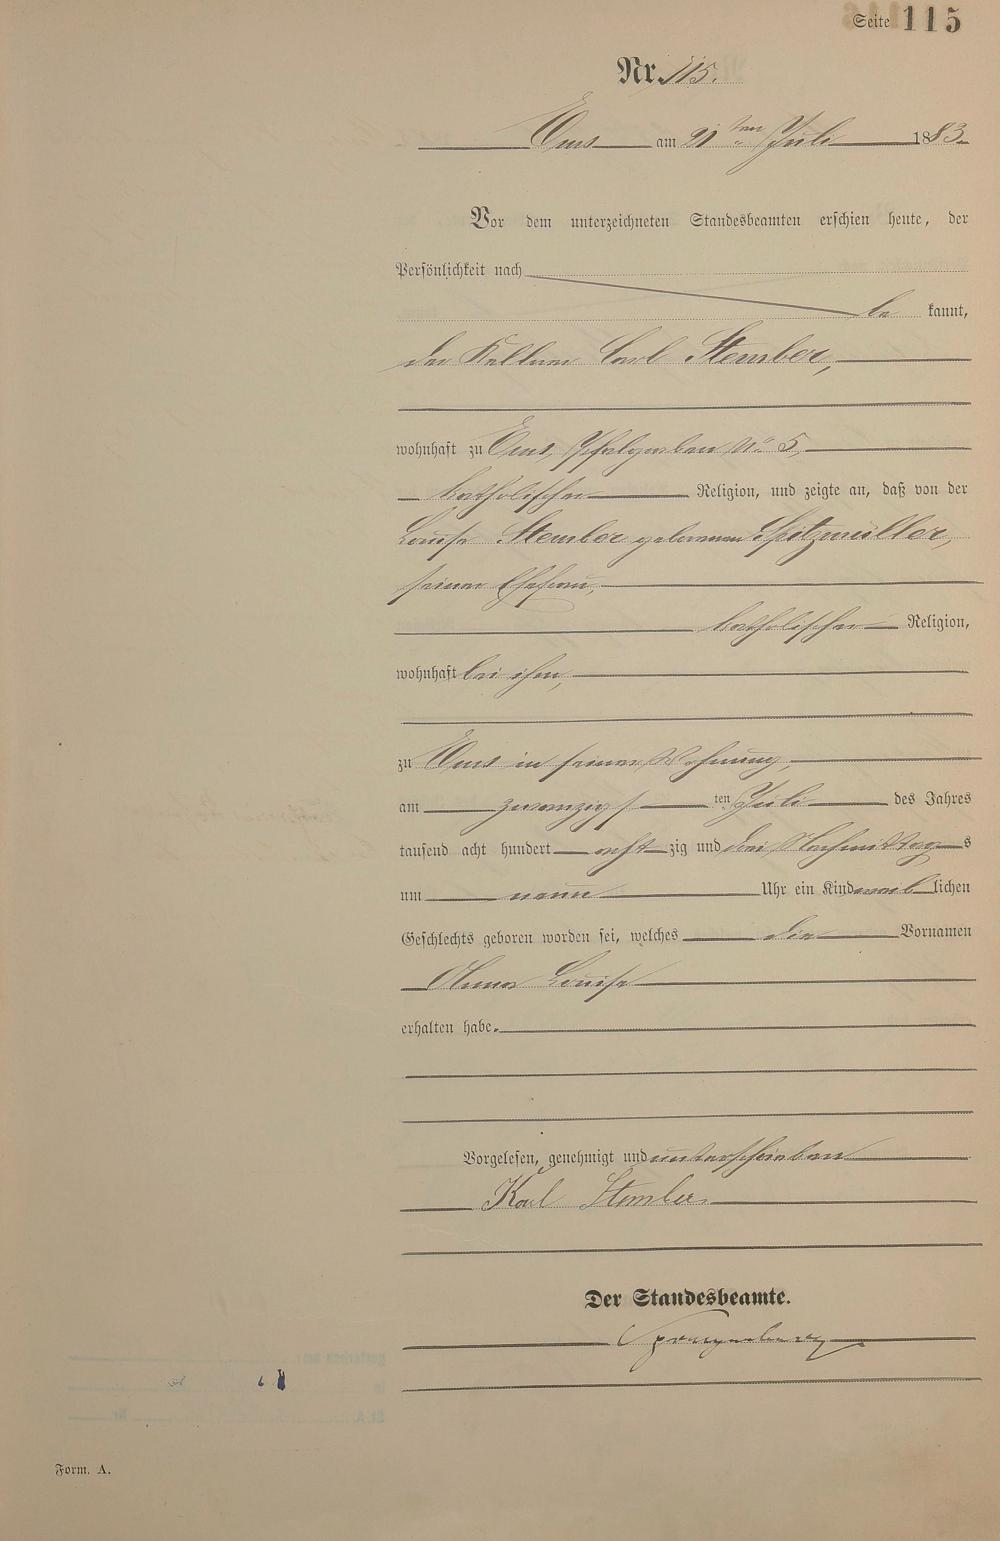 Seite 115
Nr. 115.
Ems am 21ten Juli 1883.
Vor dem unterzeichneten Standesbeamten erschien heute, der
Persönlichkeit nach
be kannt,
der Kellner Carl Stember,
wohnhaft zu Ems, Pfalgraben No 5,
katholischer Religion, und zeigte an, daß von der
Louise Stember geborenen Spitzmüller,
seiner Ehefrau,
katholischer Religion,
wohnhaft bei ihm,
zu Ems in seiner Wohnung,
am zwanzigsten Juli des Jahres
tausend acht hundert achtzig und drei Nachmittags
um neun Uhr ein Kind weiblichen
Geschlechts geboren worden sei, welches die Vornamen
Anna Louise
erhalten habe.
Vorgelesen, genehmigt und unterschrieben
Karl Stember.
Der Standesbeamte.
Form. A.